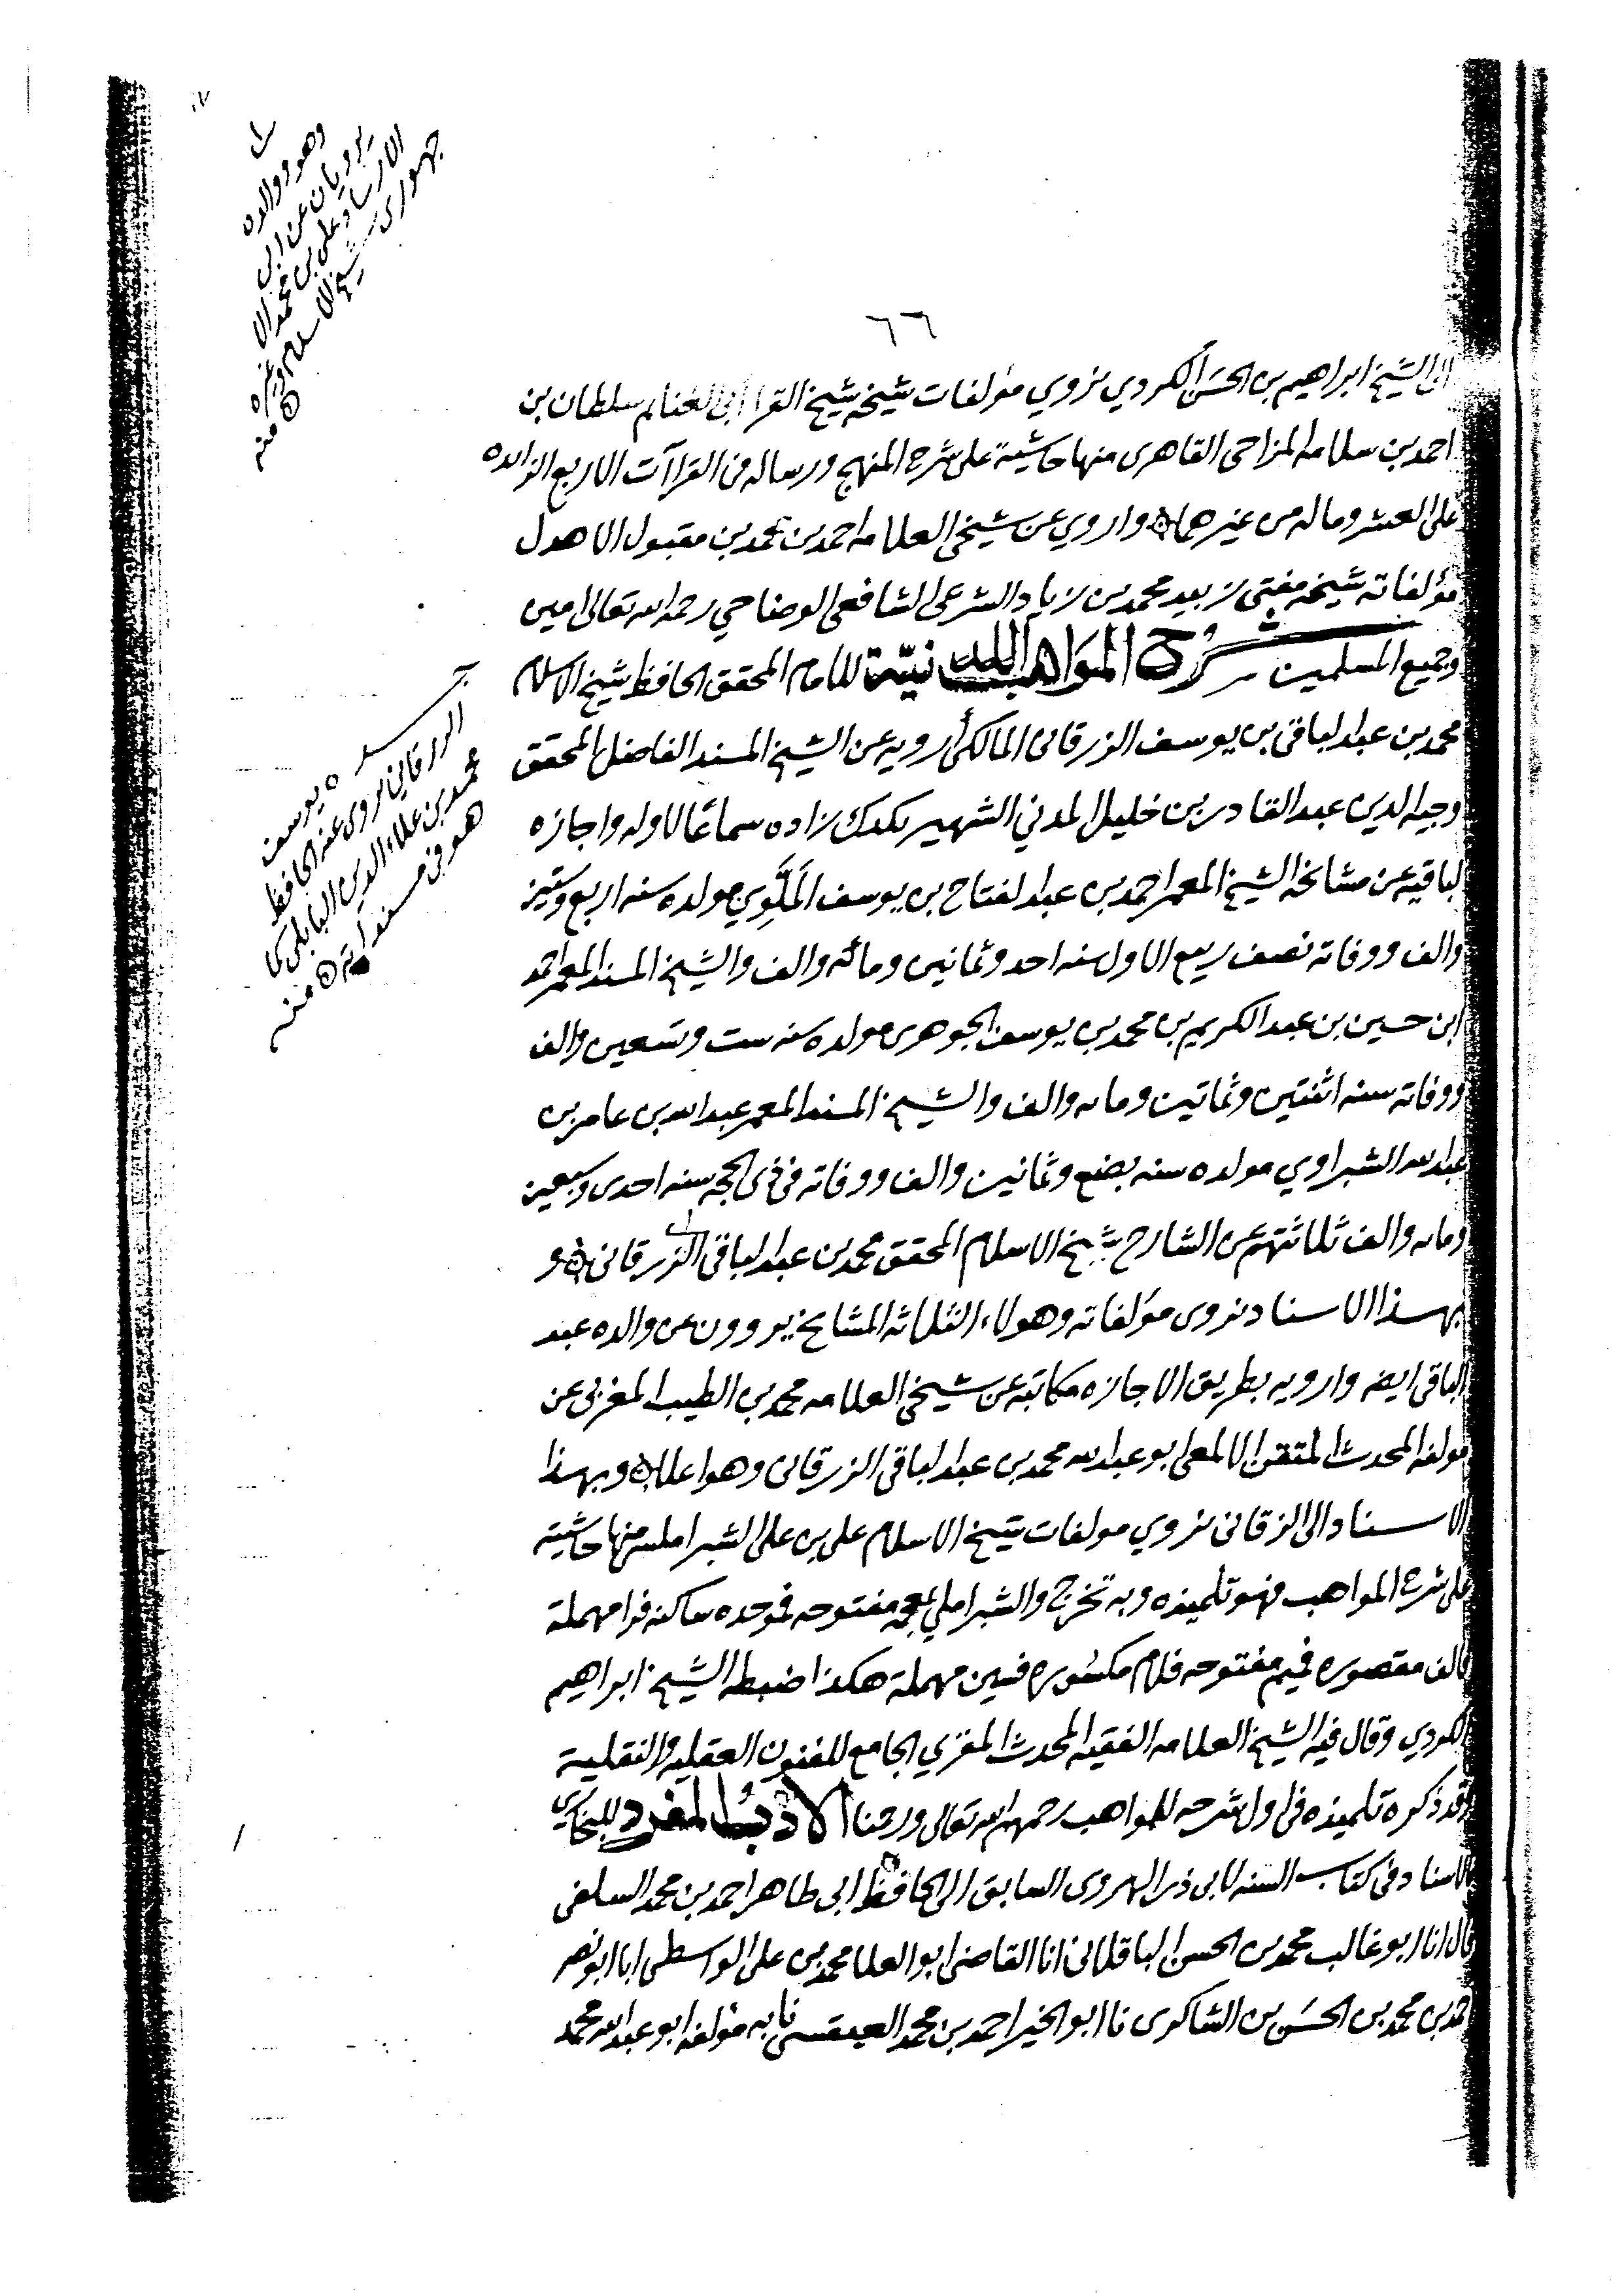 ٦٦
الى الشيخ ابراهيم بن الحسن الكردي نروي مؤلفات شيخه شيخ القرا ابى الغنايم سلطان بن
احمد بن سلامه المزاحى القاهرى منها حاشية على شرح المنهج ورساله فى القراآت الاربع الزايده
على العشر وماله من غيرهما ه واروي عن شيخى العلامه احمد بن محمد بن مقبول الاهدل
مؤلفاته شيخه مفتى زبيد محمد بن زياد الشرعى الشافعى الوضاحي رحمه الله تعالى امين
وجميع المسلمين شرح المواهب اللدنية للامام المحقق الحافظ شيخ الاسلام
محمد بن عبد الباقى بن يوسف الزرقانى المالكى أرويه عن الشيخ المسند الفاضل المحقق
وجيه الدين عبد القادر بن خليل المدني الشهير بكدك زاده سماعًا لاوله واجازه
لباقيه عن مشايخه الشيخ المعمر احمد بن عبد الفتاح بن يوسف المَلَّوِي مولده سنه اربع وستين
والف ووفاته نصف ربيع الاول سنه احد وثمانين ومائه والف والشيخ المسند المعمر احمد
ابن حسين بن عبد الكريم بن محمد بن يوسف الجوهرى مولده سنه ست وتسعين والف
ووفاته سنه اثنتين وثمانين ومايه والف والشيخ المسند المعمر عبد الله بن عامر بن
عبد الله الشبراوي مولده سنه بضع وثمانين والف ووفاته فى ذى الحجه سنه احدى وسبعين
ومايه والف ثلاثتهم عن الشارح شيخ الاسلام المحقق محمد بن عبد الباقى الزرقانى ه و
بهذا الاسناد نروى مؤلفاته وهولاء الثلاثه المشايخ يروون عن والده عبد
الباقى ايضه وارويه بطريق الاجازه مكاتبه عن شيخى العلامه محمد بن الطيب المغربى عن
مولفه المحدث المتقن الالمعى ابو عبد الله محمد بن عبد الباقى الزرقانى وهو اعلا ه وبهذا
الاسناد الى الزرقانى نروي مولفات شيخ الاسلام على بن على الشبراملسى منها حاشية
على شرح المواهب فهو تلميذه وبه تخرج والشبراملسي بمعجمه مفتوحه فموحده ساكنه فرا مهملة
فالف مقصوره فميم مفتوحه فلام مكسوره فسين مهملة هكذا ضبطه الشيخ ابراهيم
الكردي وقال فيه الشيخ العلامه الفقيه المحدث المقري الجامع للفنون العقليه والنقلية
وقد ذكره تلميذه فى اول شرحه للمواهب رحمهم الله تعالى ورحمنا الادب المفرد للبخاري
بالاسناد فى كتاب السنه لابى ذر الهروى السابق الى الحافظ ابى طاهر احمد بن محمد السلفى
قال انا ابو غالب محمد بن الحسن الباقلانى انا القاضى ابو العلا محمد بن على الواسطى انا ابو نصر
احمد بن محمد بن الحسن بن الشاكرى نا ابو الخير احمد بن محمد العبقسى نا به مؤلفه ابو عبد الله محمد
وهو ووالده
يرويان عن ابى
الارشاد على بن محمد الا
جهورى شيخ الاسلام وغيره
ه منه
يوسف
الزرقانى يروى عنه الحافظ
محمد بن علاء الدين البابلى كما
هو فى مسنداته ه منه